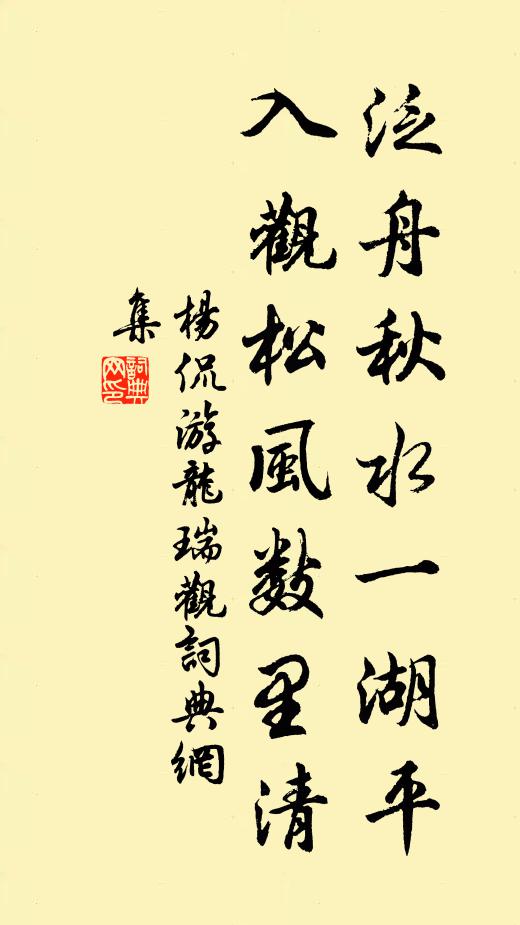 泛舟秋水一湖平
入觀松風数里清
楊侃游龍瑞觀詞典網
集
詞典網印